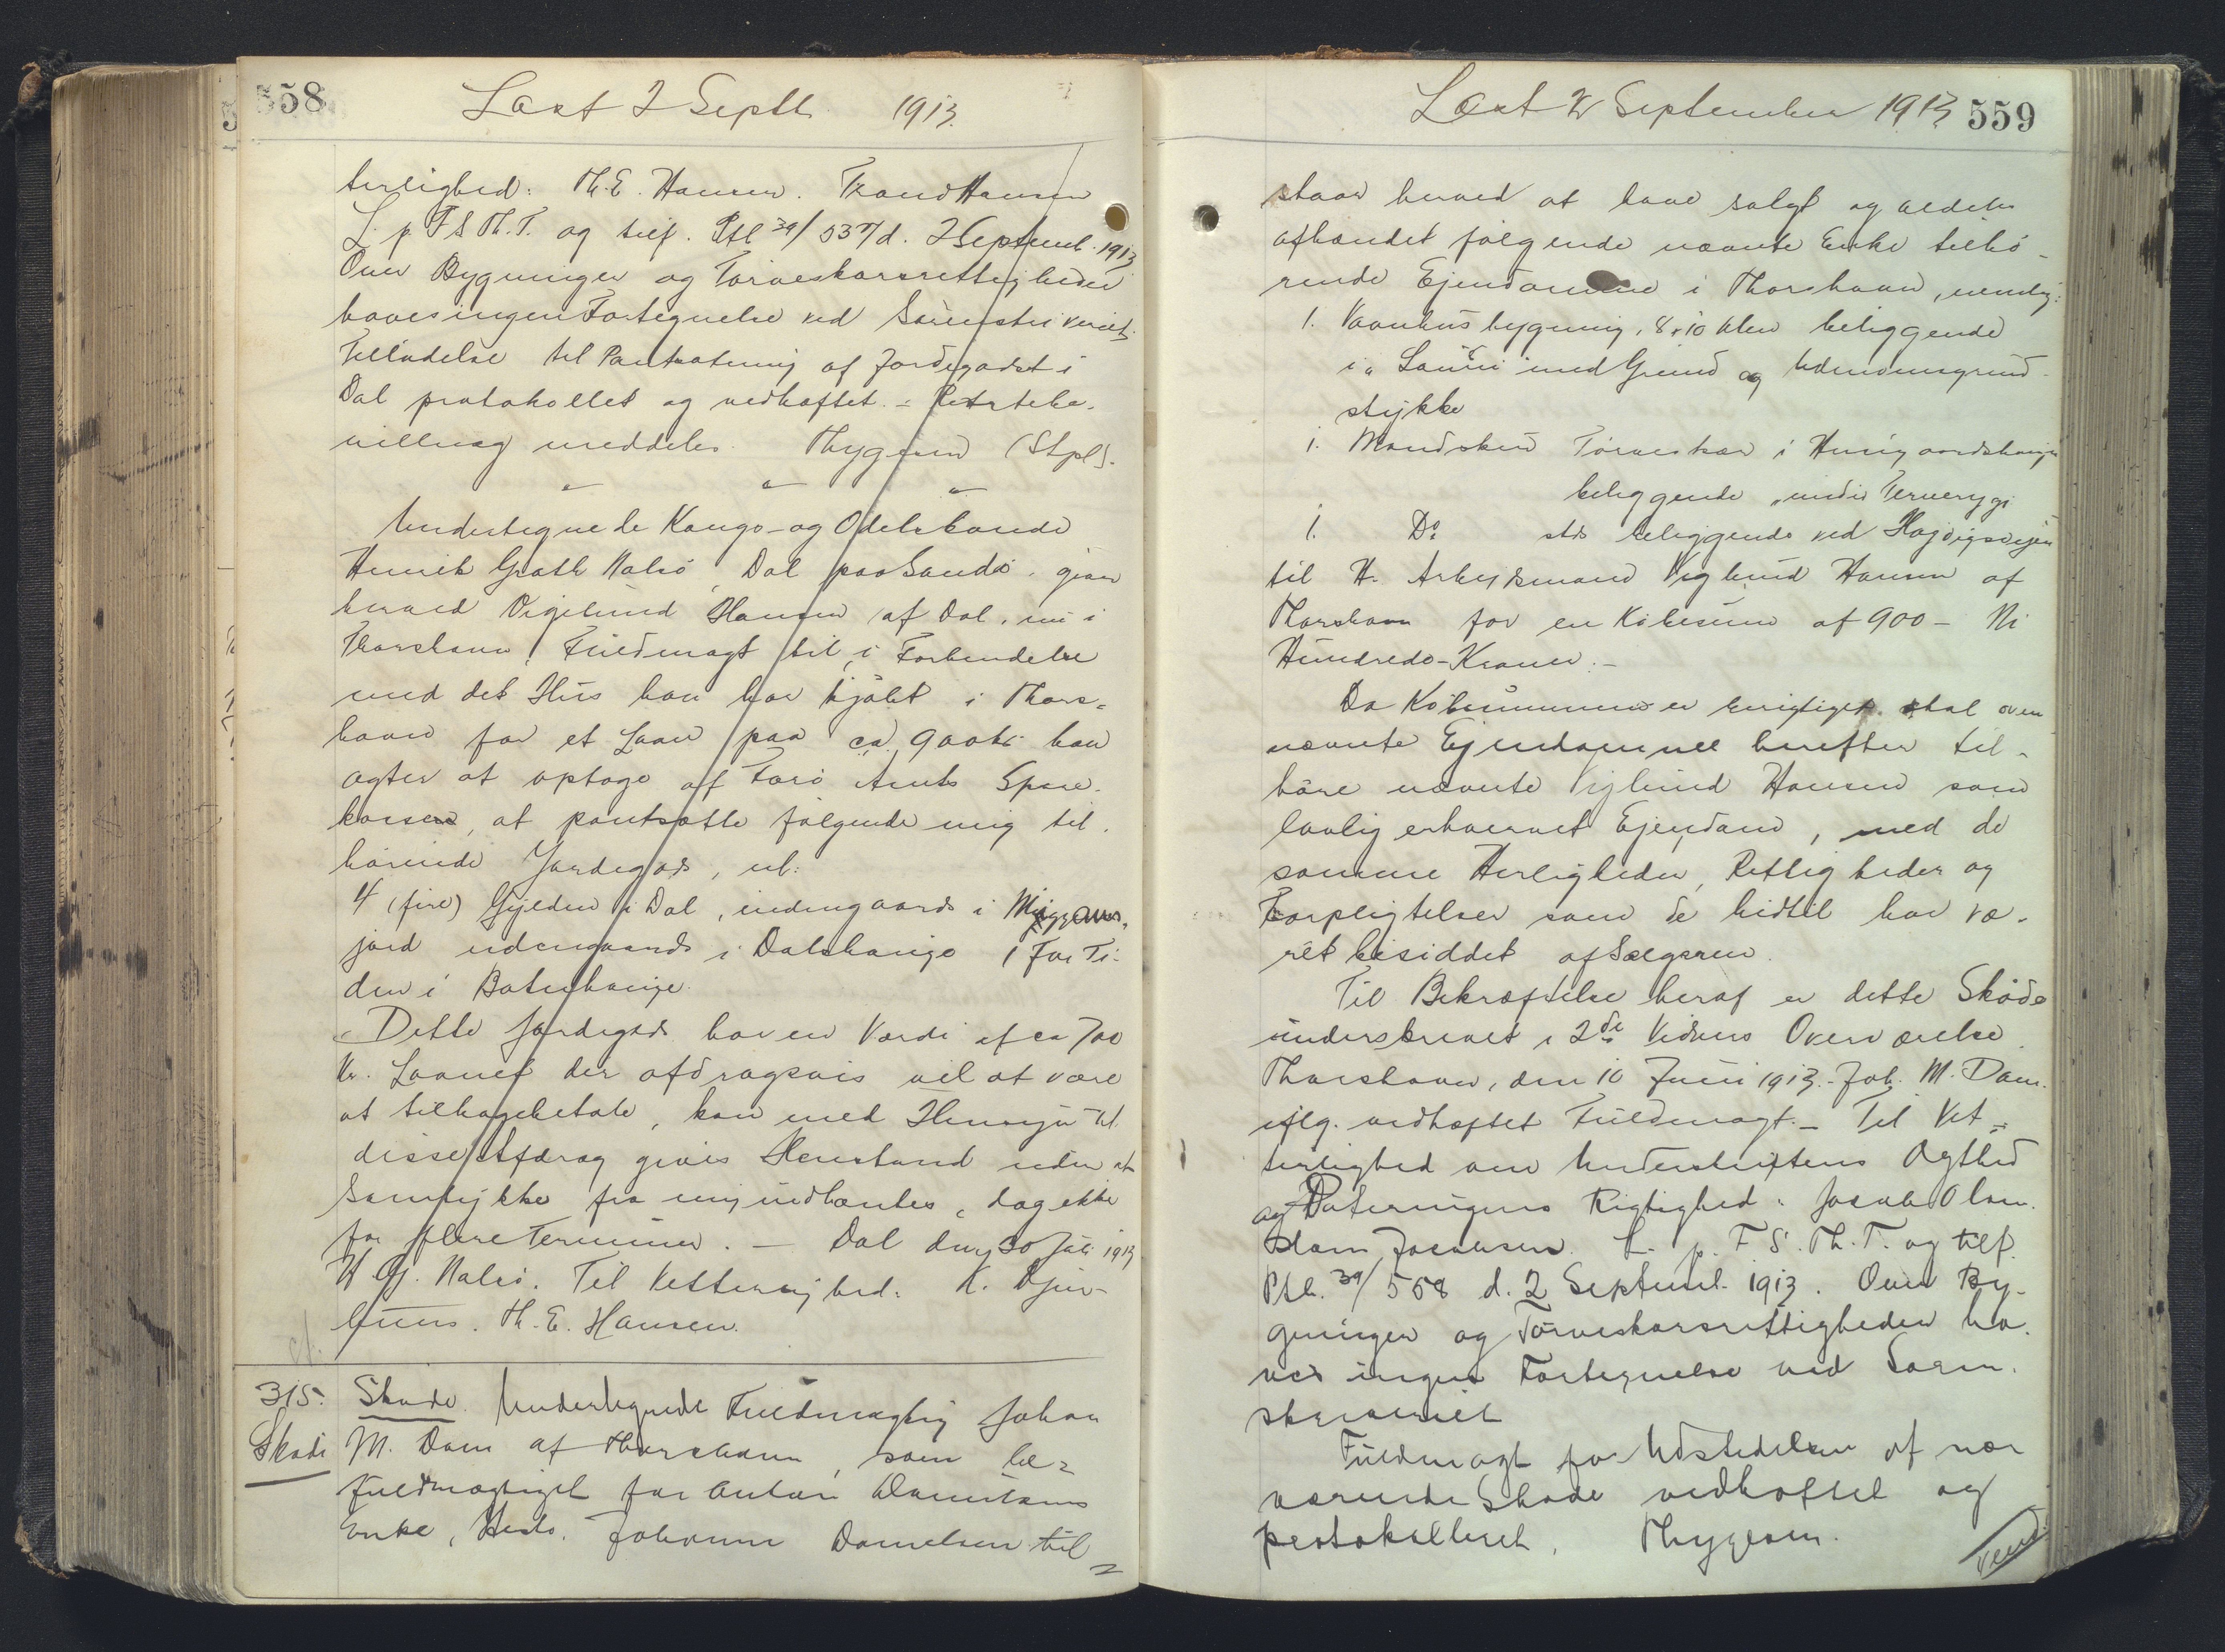 558
Læst 2 Septb. 1913.
terlighed: Th. E. Hansen. Trond Hansen
L. p. F S Th. T. og tilf. Ptl 39/537 d. 2 Septemb. 1913
Over Bygninger og Törveskærsrettigheder
haves ingen Fortegnelse ved Sörenskriveriet.
Tilladelse til Pantsætning af Jordegodset i
Dal protokollet og vedhæftet. - Retstebe-
villing meddeles. Thygesen (Stpl).
Undertegnede Kongs- og Odelsbonde
Henrik Grath Nalsö, Dal paa Sandö, giver
herved Vigelund Hansen af Dal, nu i
Thorshavn, Fuldmagt til, i Forbindelse
med det Hus han har kjöbt i Thors-
havn for et Laan paa ca. 900 kr han
agter at optage af Færö Amts Spare-
kasse, at pantsætte fölgende mig til-
hörende Jordegods, nl:
4 (fire) Gylden i Dal, indengaards i
jord udengaards i Dalshauge / For Ti-
den i
Dette Jordegods har en Værdi af ca 700
Kr. Laanet der afdragsvis vil at være
at tilbagebetale, kan med Hensyn til
disse Afdrag gives Henstand uden at
Samtykke fra mig indhentes, dog ikke
for flere Terminer. - Dal den 30 Juli 1913
H G. Nalsö. Til Vitterlighed: K. Djur-
huus. Th. E. Hansen.
315.
Sköde
Sköde. Undertegnede Fuldmægtig Johan
M. Dam af Thorshavn, som be-
fuldmægtiget for Anton Danielsens
Enke, Johanne Danielsen til-
Læst 2 September 1913
559
staar herved at have solgt og aldeles
afhændet fölgende nævnte Enke tilhö-
rende Ejendomme i Thorshavn, nemlig:
1. Vaanhusbygning, 8 x 10 Alen beliggende
i med Grund og Udenomsgrund-
stykke
1. Mandskin Törveskær i
beliggende
1. Do sts beliggende ved Hojvigsvejen
til Hr. Arbejdsmand Viglund Hansen af
Thorshavn for en Köbesum af 900 - Ni
Hundrede - Kroner. -
Da Köbesummen er berigtiget skal oven
nævnte Ejendomme herefter til-
höre nævnte Viglund Hansen som
lovlig erhvervet Ejendom, med de
samme Herligheder, Rettigheder og
Forpligtelser som de hidtil har væ-
ret besiddet af Sælgeren.
Til Bekræftelse heraf er dette Sköde
underskrevet i 2de Vidners Overværelse.
Thorshavn, den 10 Juni 1913. - Joh. M. Dam.
iflg. vedhæftet Fuldmagt. - Til Vit-
terlighed om Underskriftens Ægthed
og Dateringens Rigtighed: Jacob Olsen.
Hans Jacobsen. L. p. F. S. Th. T. og tilf.
Ptl. 39/558 d. 2 Septemb. 1913. Over By-
gningen og Törveskærsrettigheder ha-
ves ingen Fortegnelse ved Sören-
skriveriet
Fuldmagt for Udstedelsen af nær-
værende Sköde vedhæftet og
protokolleret. Thygesen.
Vend